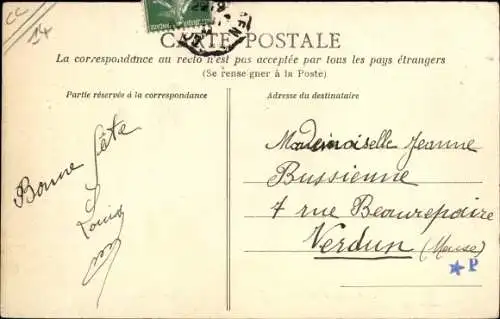 CC
14
CARTE POSTALE
La correspondance au recto n'est pas acceptée par tous les pays étrangers
(Se renseigner à la Poste)
Partie réservée à la correspondance
Adresse du destinataire
Bonne fête
Louis
Mademoiselle Jeanne
Bussienne
7 rue Beaurepaire
Verdun (Meuse)
★ P